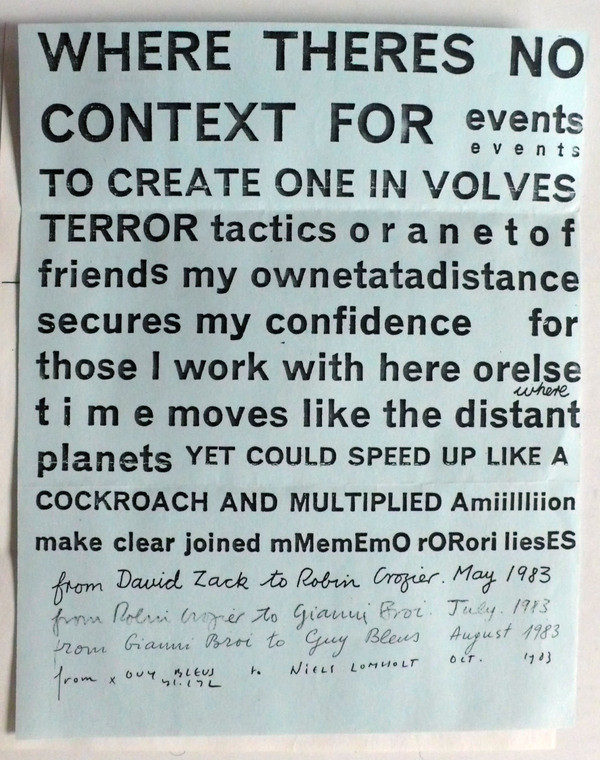 WHERE THERES NO
CONTEXT FOR events
e v e n t s
TO CREATE ONE IN VOLVES
TERROR tactics o r a n e t o f
friends my ownetatadistance
secures my confidence for
those I work with here orelse
where
t i m e moves like the distant
planets YET COULD SPEED UP LIKE A
COCKROACH AND MULTIPLIED Amiillliion
make clear joined mMemEmO rORori liesES
from David Zack to Robin Crozier. May 1983
from Robin Crozier to Gianni Broi. July. 1983
from Gianni Broi to Guy Bleus August 1983
from x GUY BLEUS to NIELS LOMHOLT OCT. 1983